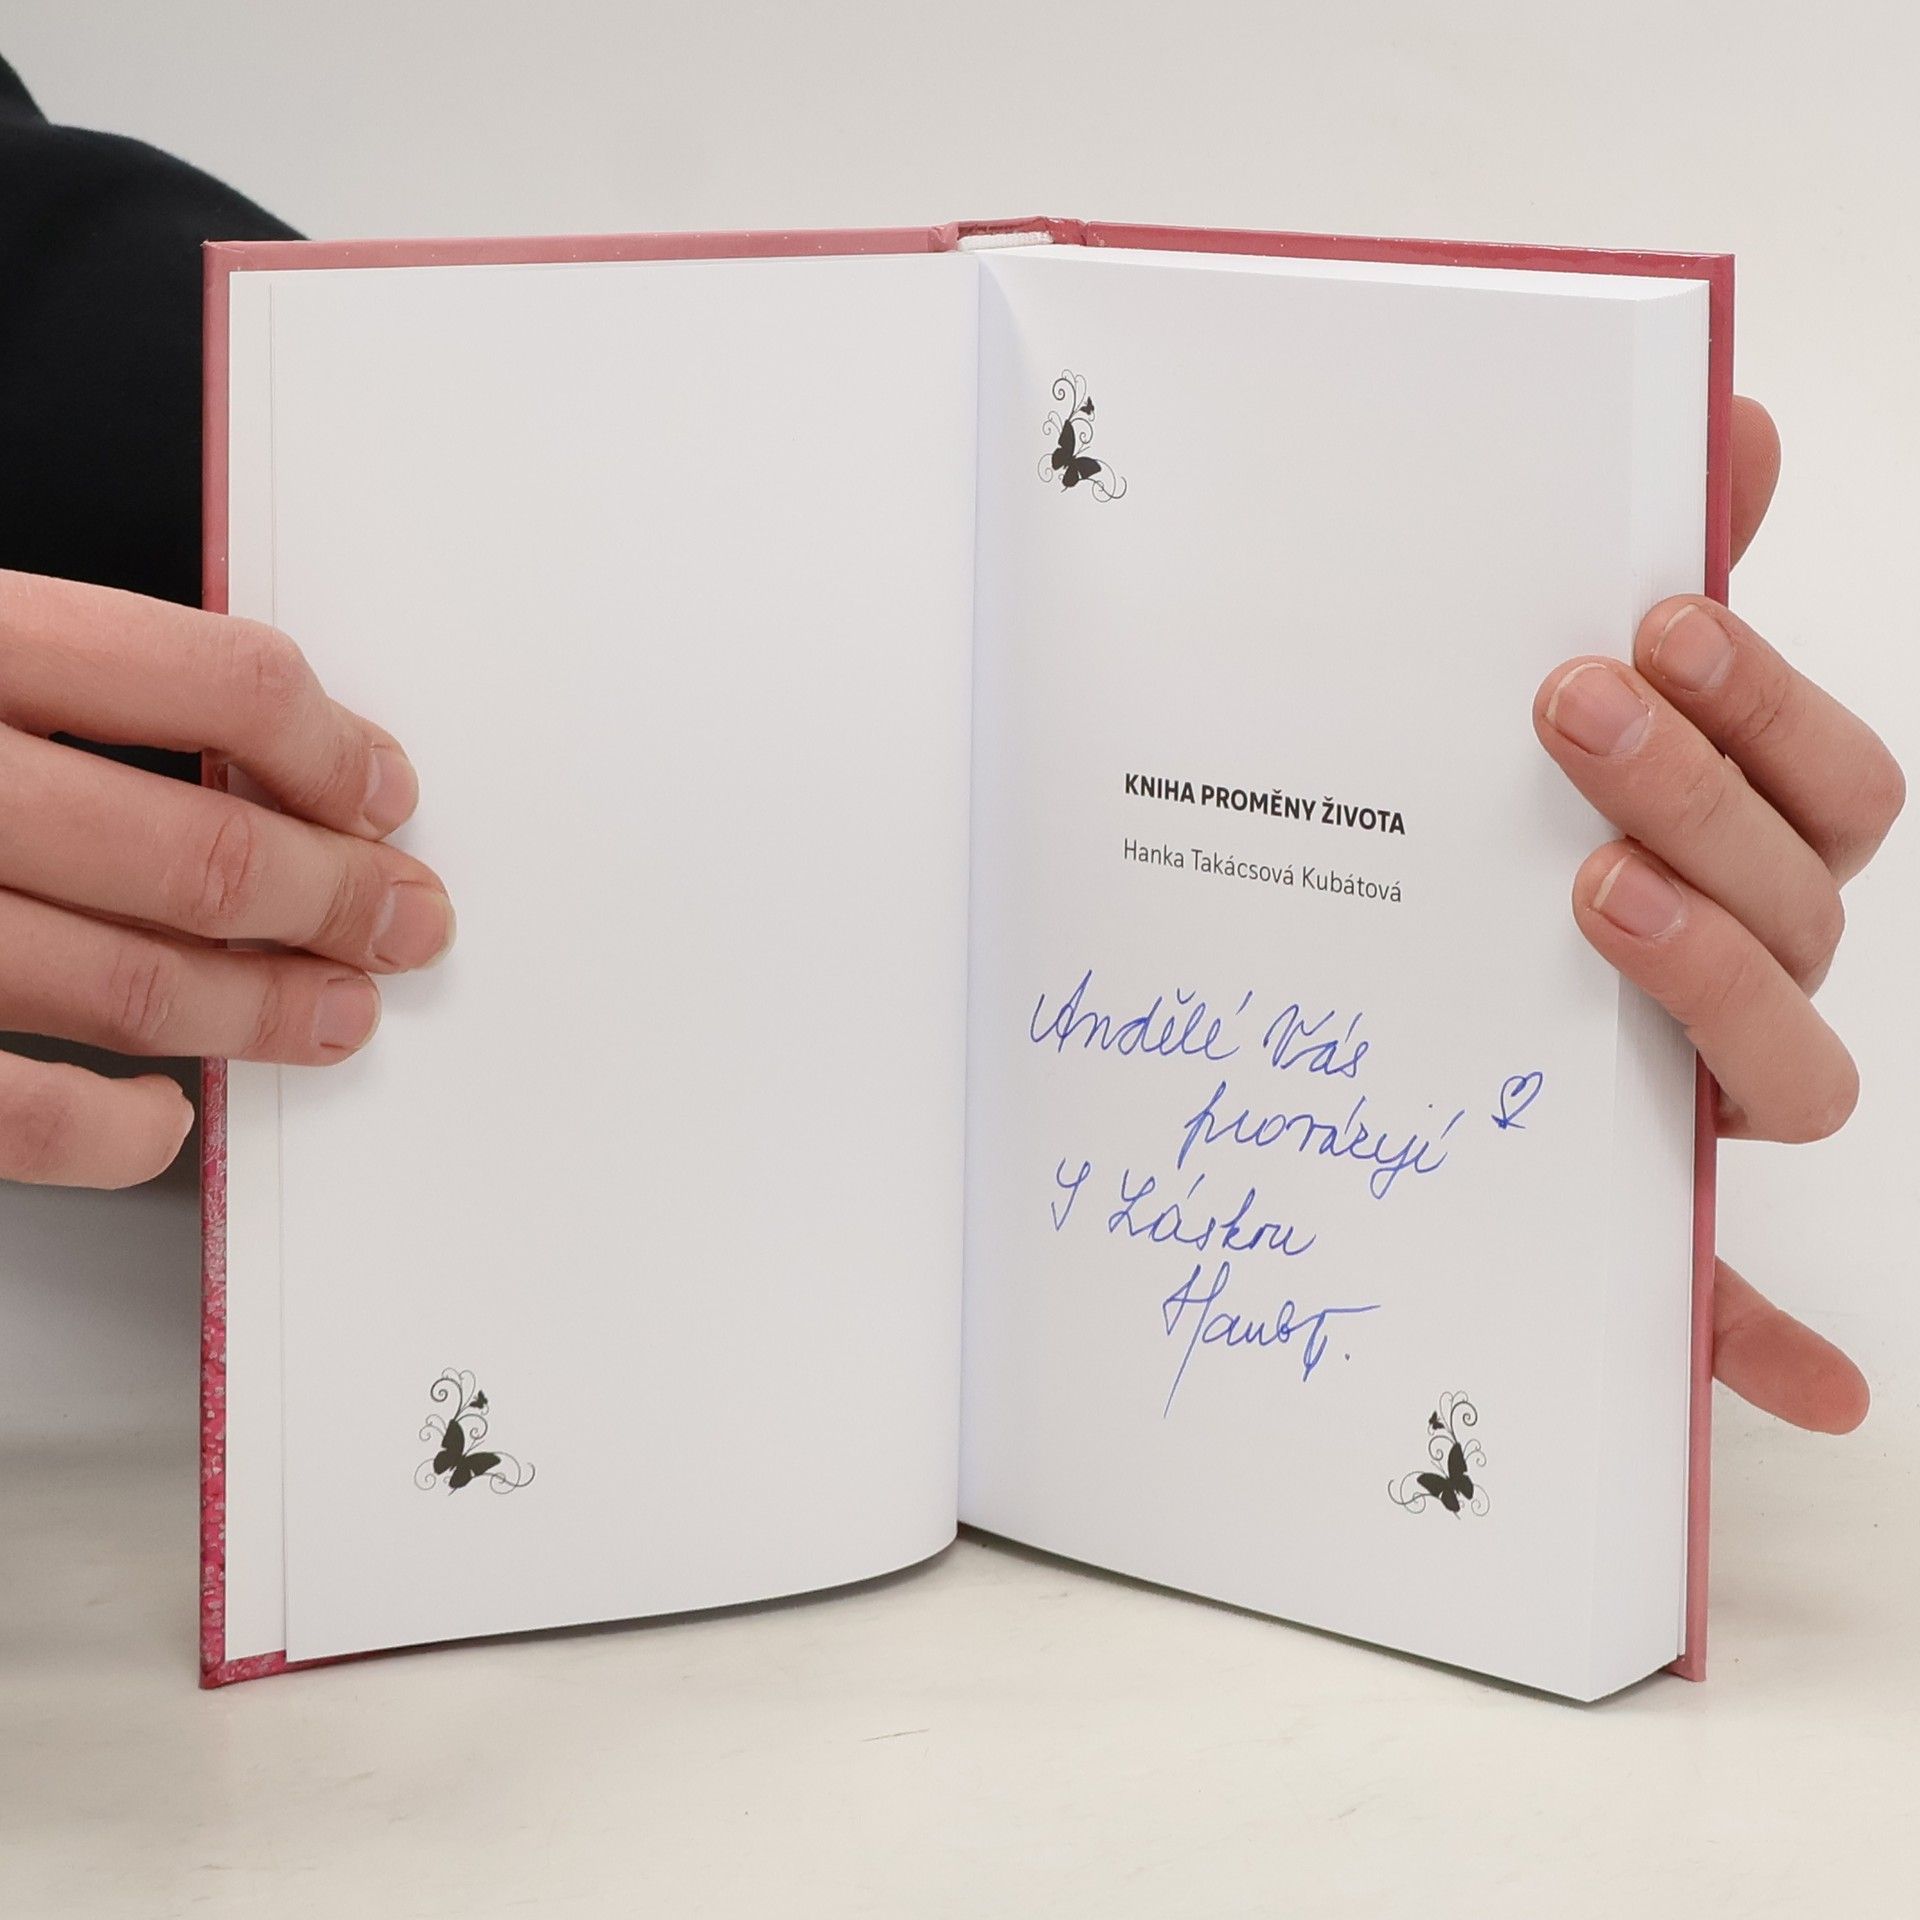 KNIHA PROMĚNY ŽIVOTA
Hanka Takácsová Kubátová
Andělé Vás
provázejí
S Láskou